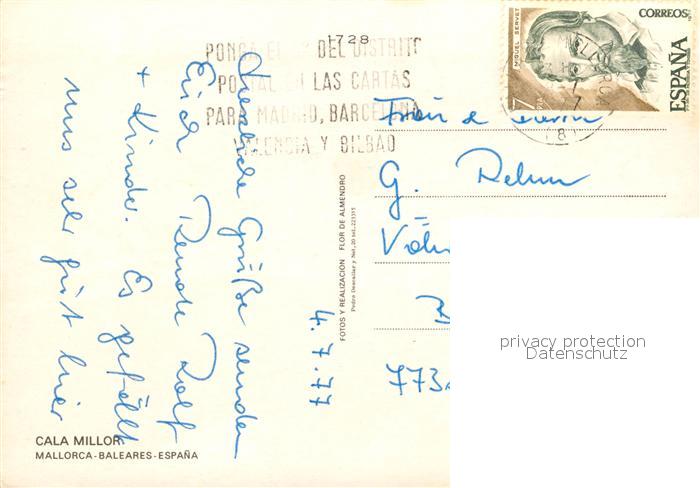 1728
PONGA EL Nº DEL DISTRITO
POSTAL EN LAS CARTAS
PARA MADRID, BARCELONA
VALENCIA Y BILBAO
CORREOS
ESPAÑA
MIGUEL SERVET
7
Herzliche Grüße senden
Euch Renate Rolf
+ Kinder. Es gefällt
uns sehr gut hier
4.7.77
FOTOS Y REALIZACION FLOR DE ALMENDRO
G.
773
privacy protection
Datenschutz
CALA MILLOR
MALLORCA-BALEARES-ESPAÑA